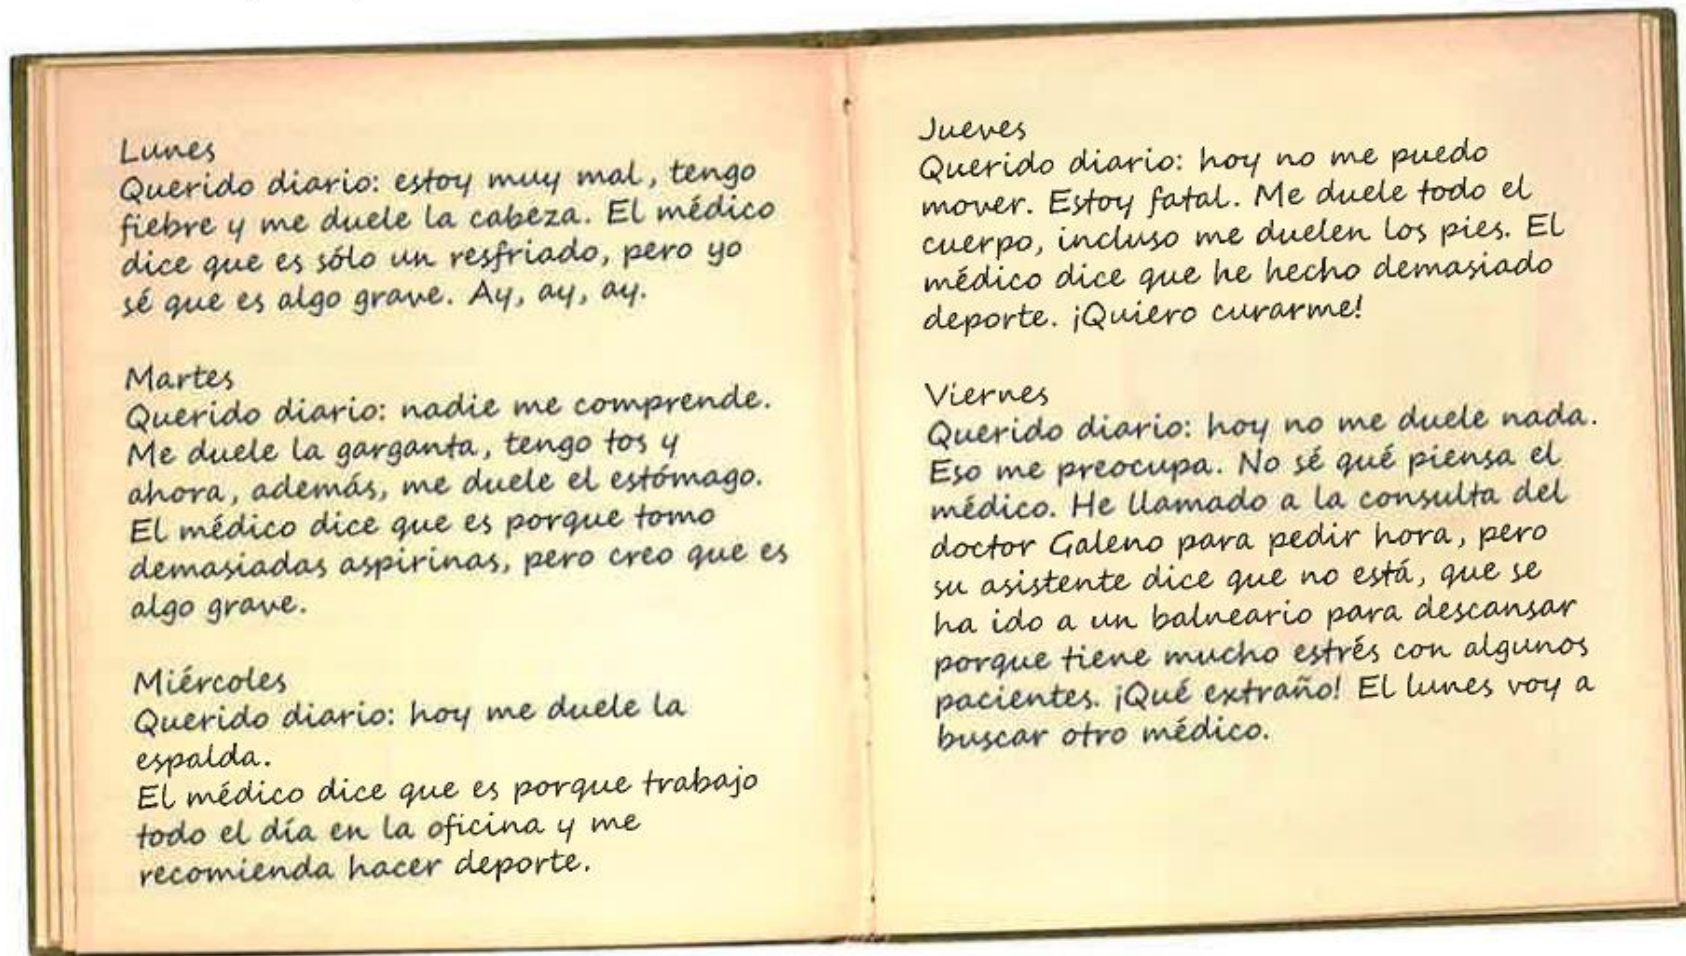 Lunes
Querido diario: estoy muy mal, tengo
fiebre y me duele la cabeza. El médico
dice que es sólo un resfriado, pero yo
sé que es algo grave. Ay, ay, ay.
Martes
Querido diario: nadie me comprende.
Me duele la garganta, tengo tos y
ahora, además, me duele el estómago.
El médico dice que es porque tomo
demasiadas aspirinas, pero creo que es
algo grave.
Miércoles
Querido diario: hoy me duele la
espalda.
El médico dice que es porque trabajo
todo el día en la oficina y me
recomienda hacer deporte.
Jueves
Querido diario: hoy no me puedo
mover. Estoy fatal. Me duele todo el
cuerpo, incluso me duelen los pies. El
médico dice que he hecho demasiado
deporte. ¡Quiero curarme!
Viernes
Querido diario: hoy no me duele nada.
Eso me preocupa. No sé qué piensa el
médico. He llamado a la consulta del
doctor Galeno para pedir hora, pero
su asistente dice que no está, que se
ha ido a un balneario para descansar
porque tiene mucho estrés con algunos
pacientes. ¡Qué extraño! El lunes voy a
buscar otro médico.